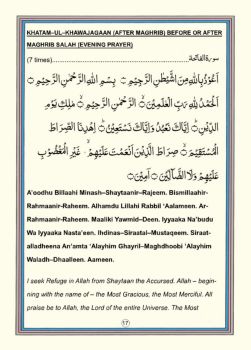 KHATAM–UL–KHAWAJAGAAN (AFTER MAGHRIB) BEFORE OR AFTER
MAGHRIB SALAH (EVENING PRAYER)
(7 times)........................................سورة الفاتحة
اَعُوْذُ بِاللهِ مِنَ الشَّيْطٰنِ الرَّجِيْمِ ۞ بِسْمِ اللهِ الرَّحْمٰنِ الرَّحِيْمِ ۞
اَلْحَمْدُ لِلّٰهِ رَبِّ الْعٰلَمِيْنَ ۞ الرَّحْمٰنِ الرَّحِيْمِ ۞ مٰلِكِ يَوْمِ
الدِّيْنِ ۞ اِيَّاكَ نَعْبُدُ وَاِيَّاكَ نَسْتَعِيْنُ ۞ اِهْدِنَا الصِّرَاطَ
الْمُسْتَقِيْمَ ۞ صِرَاطَ الَّذِيْنَ اَنْعَمْتَ عَلَيْهِمْ ۙ غَيْرِ الْمَغْضُوْبِ
عَلَيْهِمْ وَلَا الضَّآلِّيْنَ ۞ اٰمِيْن ۞
A'oodhu Billaahi Minash–Shaytaanir–Rajeem. Bismillaahir-
Rahmaanir-Raheem. Alhamdu Lillahi Rabbil 'Aalameen. Ar-
Rahmaanir-Raheem. Maaliki Yawmid–Deen. Iyyaaka Na'budu
Wa Iyyaaka Nasta'een. Ihdinas–Siraatal–Mustaqeem. Siraat-
alladheena An'amta 'Alayhim Ghayril–Maghdhoobi 'Alayhim
Waladh–Dhaalleen. Aameen.
I seek Refuge in Allah from Shaytaan the Accursed. Allah – begin-
ning with the name of – the Most Gracious, the Most Merciful. All
praise be to Allah, the Lord of the entire Universe. The Most
17